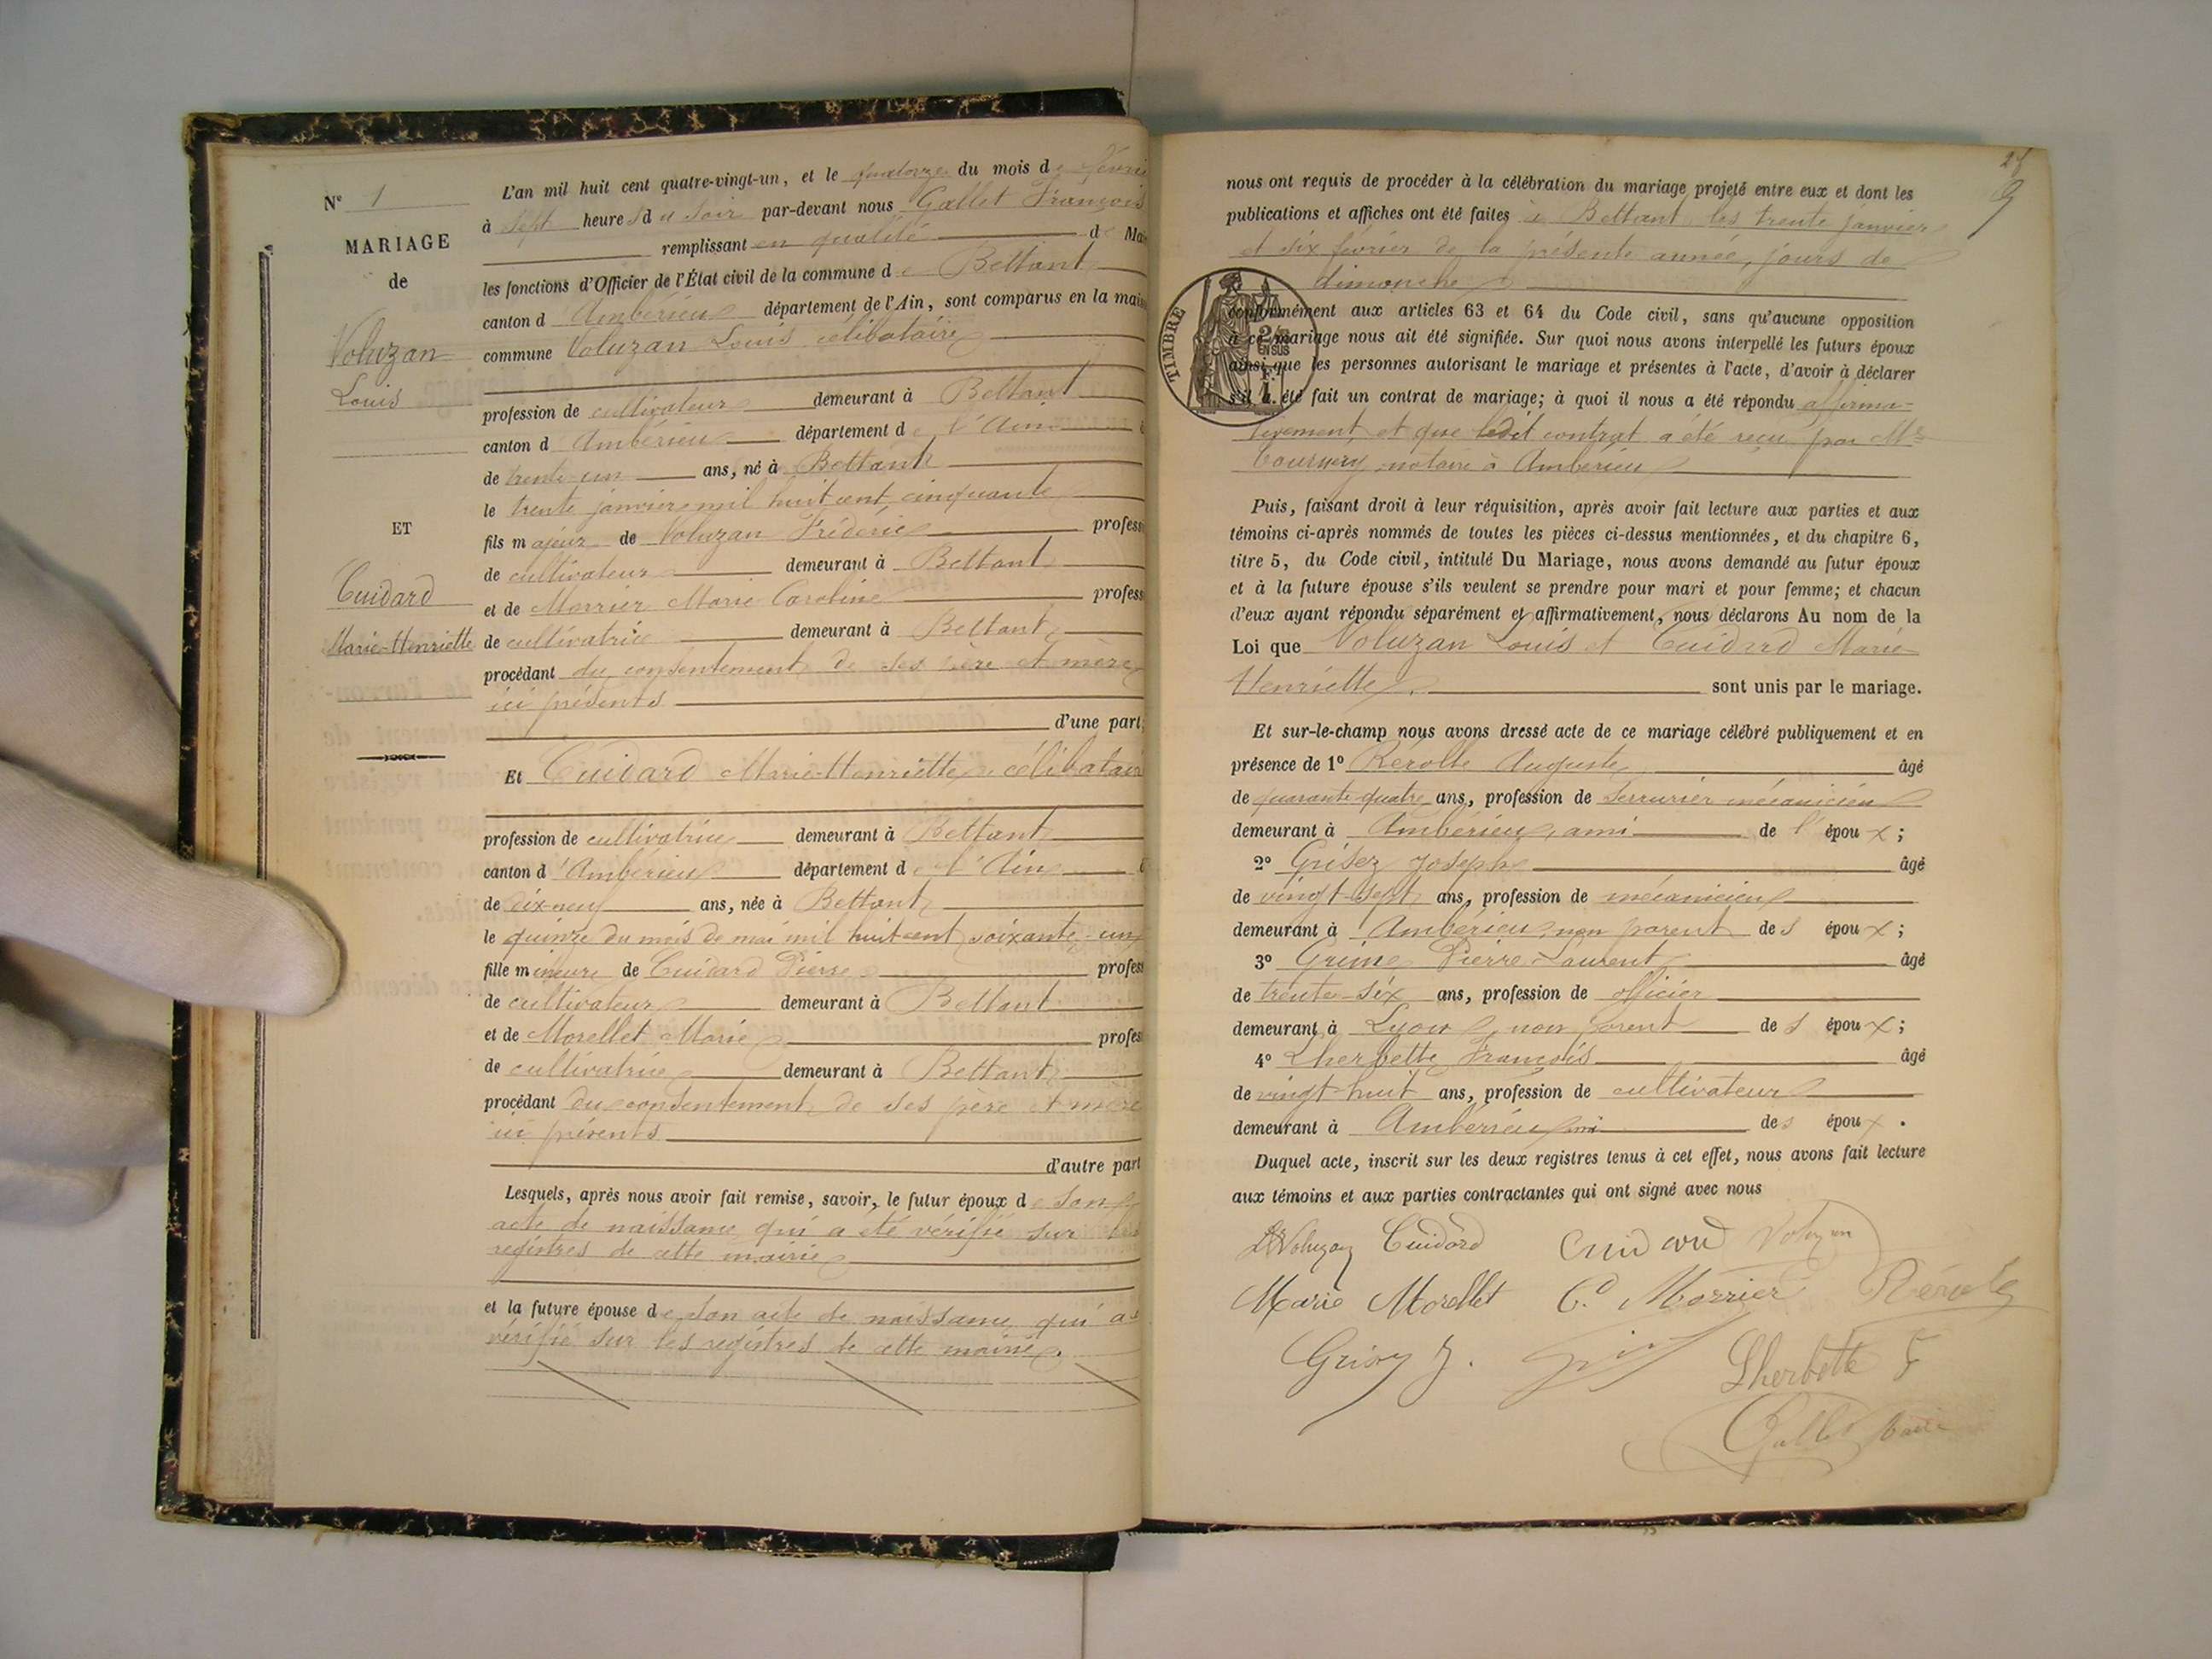 N° 1
MARIAGE
de
Voluzan
Louis
ET
Cuidard
Marie-Henriette
L'an mil huit cent quatre-vingt-un, et le quatorze du mois de
à sept heures du soir par-devant nous Gallet François
remplissant en qualité de
les fonctions d'Officier de l'État civil de la commune de Bettant
canton d Ambérieu département de l'Ain, sont comparus en la
commune Voluzan Louis célibataire
profession de cultivateur demeurant à Bettant
canton d Ambérieu département de l'Ain
de trente-un ans, né à Bettant
le trente janvier mil huit cent cinquante
fils majeur de Voluzan Fréderic
de cultivateur demeurant à Bettant
et de Morrier Marie Caroline
de cultivatrice demeurant à Bettant
procédant du consentement de ses père et mère
ici présents
d'une part;
Et Cuidard Marie-Henriette célibataire
profession de cultivatrice demeurant à Bettant
canton d'Ambérieu département de l'Ain
de dix-neuf ans, née à Bettant
le quinze du mois de mai mil huit cent soixante-un
fille mineure de Cuidard Pierre
de cultivateur demeurant à Bettant
et de Morellet Marie
de cultivatrice demeurant à Bettant
procédant du consentement de ses père et mère
ici présents
d'autre part
Lesquels, après nous avoir fait remise, savoir, le futur époux de son
acte de naissance qui a été vérifié sur les
registres de cette mairie
et la future épouse de son acte de naissance qui a
vérifié sur les registres de cette mairie.
9
nous ont requis de procéder à la célébration du mariage projeté entre eux et dont les
publications et affiches ont été faites à Bettant les trente janvier
et six février de la présente année, jours de
dimanche
TIMBRE
conformément aux articles 63 et 64 du Code civil, sans qu'aucune opposition
à ce mariage nous ait été signifiée. Sur quoi nous avons interpellé les futurs époux
ainsi que les personnes autorisant le mariage et présentes à l'acte, d'avoir à déclarer
s'il a été fait un contrat de mariage; à quoi il nous a été répondu affirma-
tivement et que ledit contrat a été reçu par Me
notaire à Ambérieu
Puis, faisant droit à leur réquisition, après avoir fait lecture aux parties et aux
témoins ci-après nommés de toutes les pièces ci-dessus mentionnées, et du chapitre 6,
titre 5, du Code civil, intitulé Du Mariage, nous avons demandé au futur époux
et à la future épouse s'ils veulent se prendre pour mari et pour femme; et chacun
d'eux ayant répondu séparément et affirmativement, nous déclarons Au nom de la
Loi que Voluzan Louis et Cuidard Marie
Henriette. sont unis par le mariage.
Et sur-le-champ nous avons dressé acte de ce mariage célébré publiquement et en
présence de 1° Rérolle Auguste âgé
de quarante-quatre ans, profession de serrurier mécanicien
demeurant à Ambérieu, ami de l'époux;
2° Grisez Joseph âgé
de vingt-sept ans, profession de mécanicien
demeurant à Ambérieu, non parent des époux;
3° Pierre Laurent âgé
de trente-six ans, profession de officier
demeurant à Lyon, non parent des époux;
4° Lherbette François âgé
de vingt-huit ans, profession de cultivateur
demeurant à Ambérieu ami des époux.
Duquel acte, inscrit sur les deux registres tenus à cet effet, nous avons fait lecture
aux témoins et aux parties contractantes qui ont signé avec nous
Ls Voluzan Cuidard Cuidard Voluzan
Marie Morellet C. Morrier Rérolle
Lherbette F
Gallet Maire